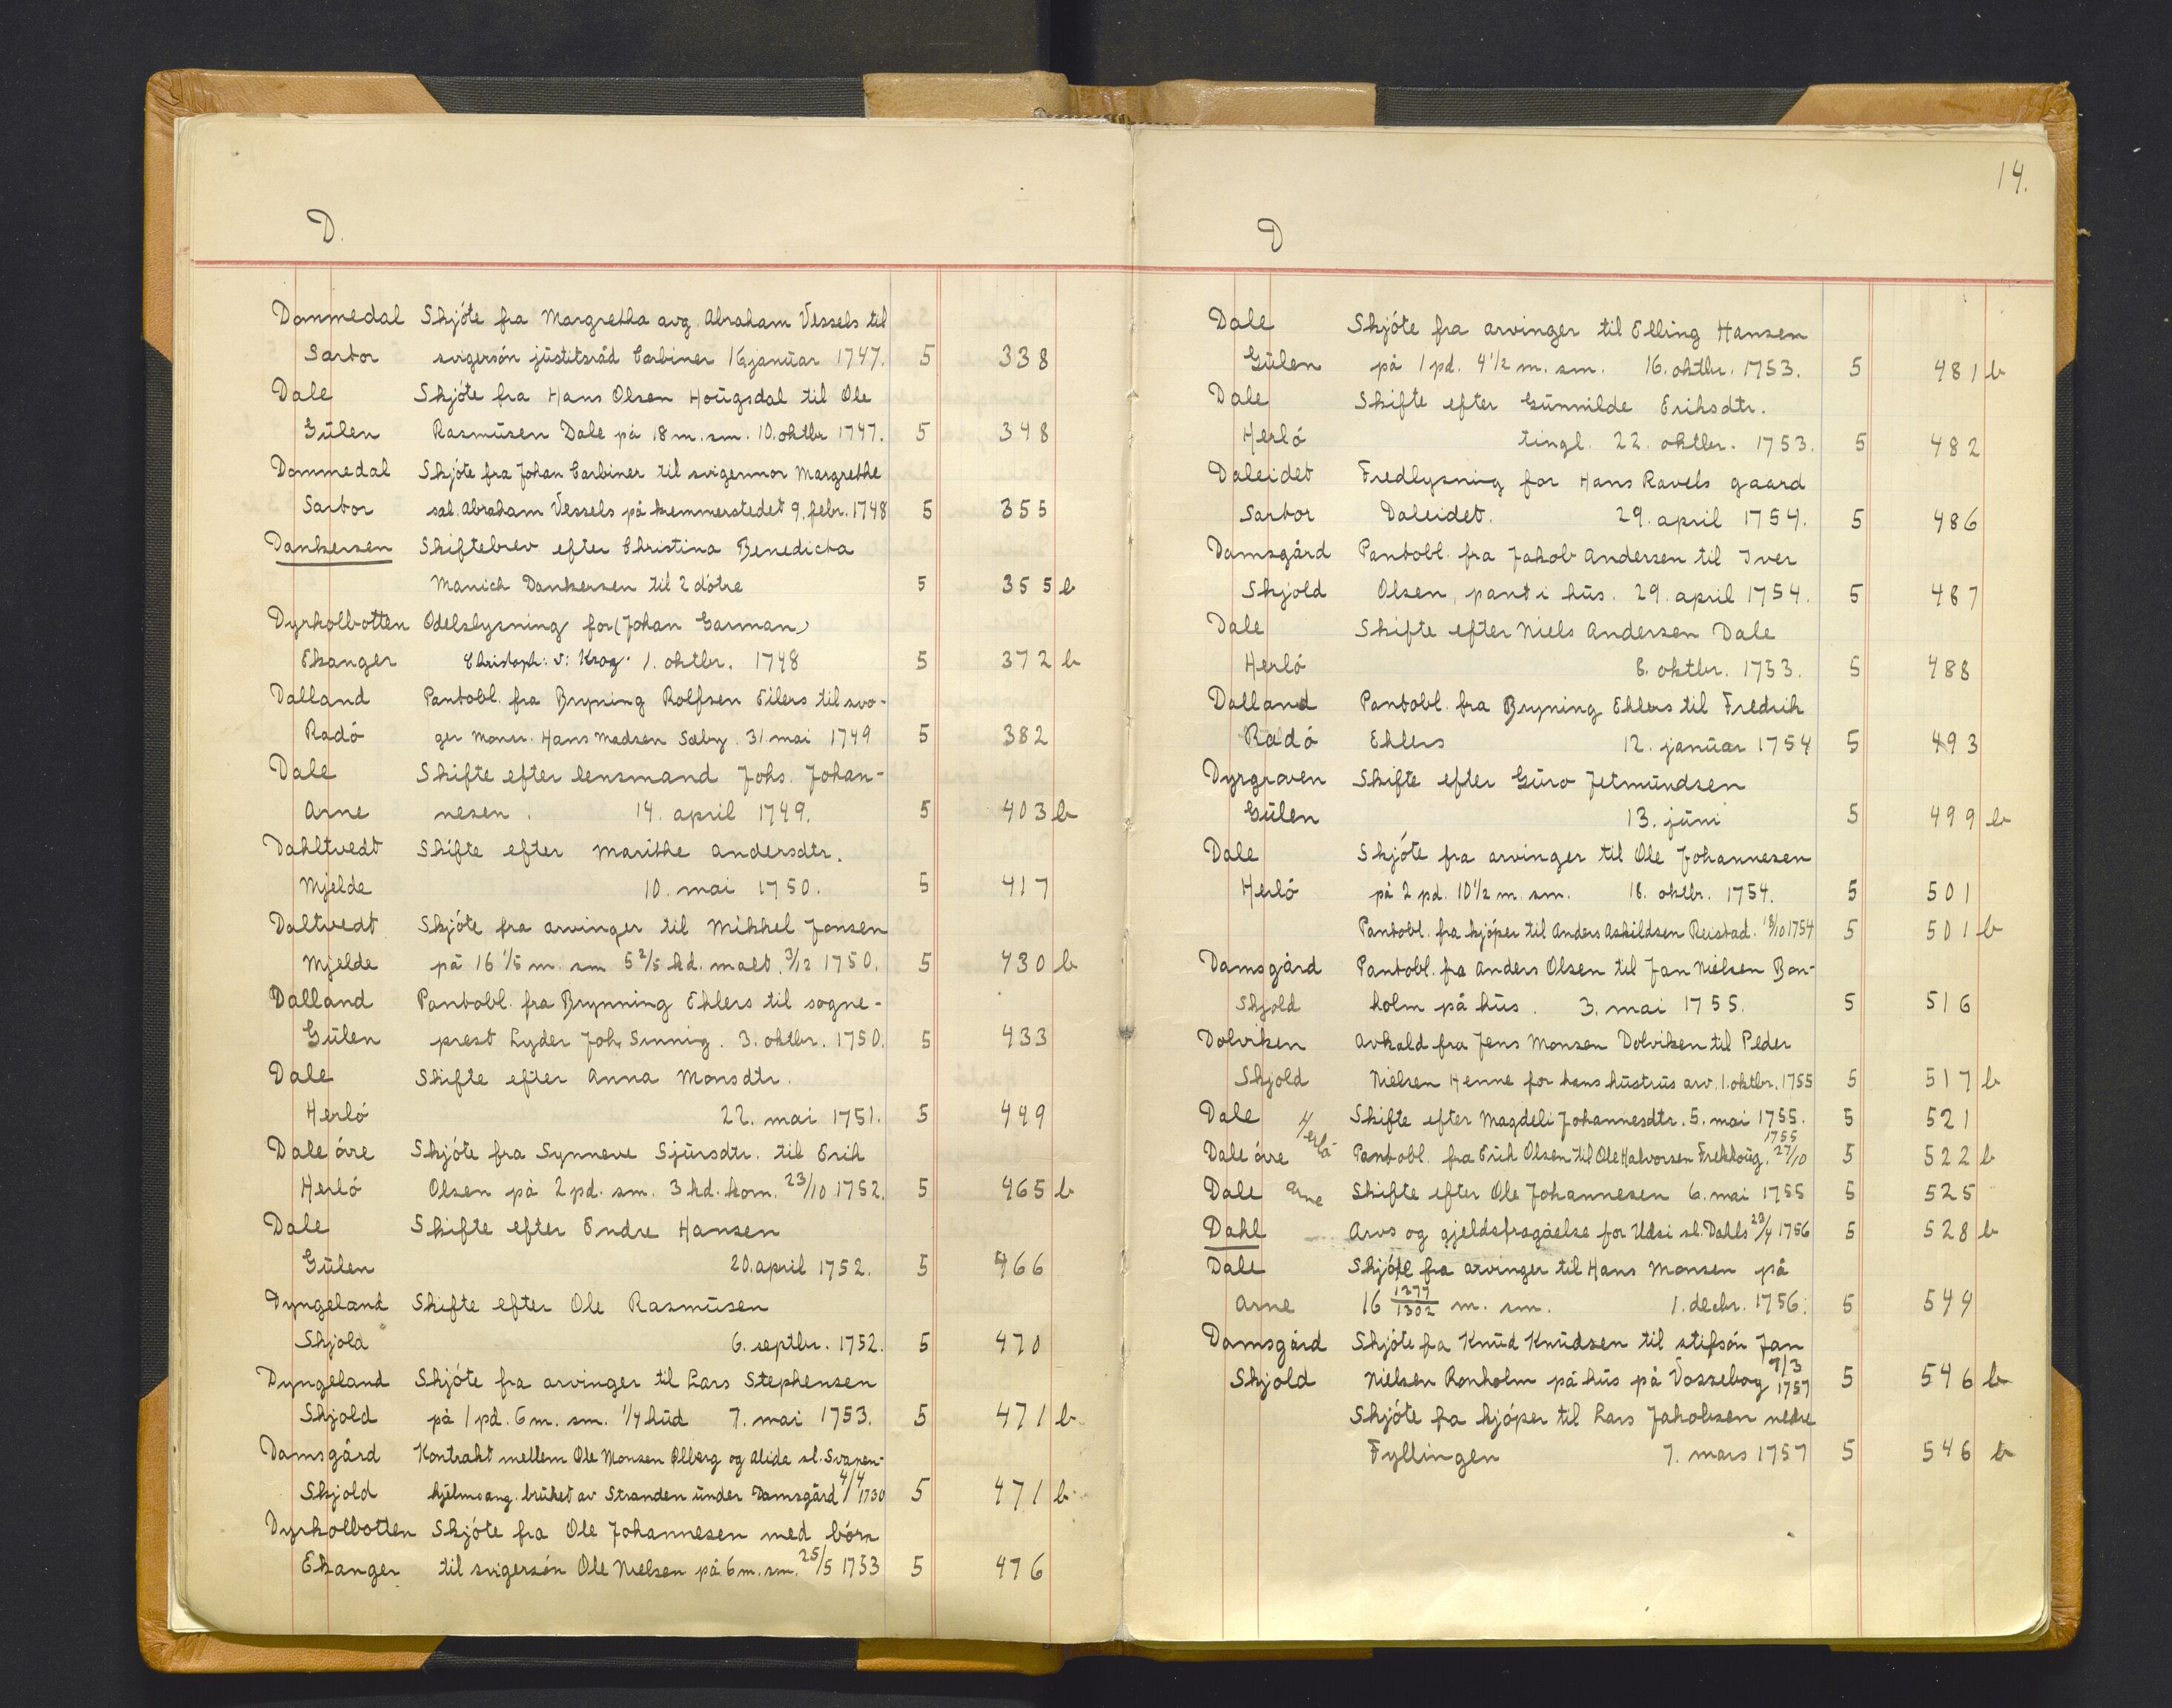 D.
Dommedal Skjøte fra Margretha avg. Abraham Vessels til
Sartor svigersøn justitsråd Carbiner 16 januar 1747. 5 338
Dale Skjøte fra Hans Olsen Hougsdal til Ole
Gulen Rasmusen Dale på 18 m. sm. 10. oktbr 1747. 5 348
Dommedal Skjøte fra Johan Carbiner til svigermor Margrethe
Sartor sal. Abraham Vessels på kremmerstedet 9. febr. 1748 5 355
Dankersen Skiftebrev efter Christina Benedicta
Manich Dankersen til 2 døtre 5 355 b
Dyrkolbotten Odelslysning for (Johan Garman)
Ekanger Christoph: v: Krog. 1. oktbr. 1748 5 372 b
Dalland Pantobl. fra Bryning Rolfsen Eilers til svo-
Radø ger Monsr. Hans Madsen Sæby. 31. mai 1749 5 382
Dale Skifte efter lensmand Johs. Johan-
Arne nesen. 14. april 1749. 5 403 b
Dahltvedt Skifte efter Marithe Andersdtr.
Mjelde 10. mai 1750. 5 417
Daltvedt Skjøte fra arvinger til Mikkel Jonsen
Mjelde på 16 1/5 m. sm 5 2/5 kd. malt. 3/12 1750. 5 430 b
Dalland Pantobl. fra Brynning Ehlers til sogne-
Gulen prest Lyder Joh. Sunnig. 3. oktbr. 1750. 5 433
Dale Skifte efter Anna Monsdtr.
Herlø 22. mai 1751. 5 449
Dale øvre Skjøte fra Synneve Sjursdtr. til Erik
Herlø Olsen på 2 pd. sm. 3 kd. korn. 23/10 1752. 5 465 b
Dale Skifte efter Endre Hansen
Gulen 20. april 1752. 5 466
Dyngeland Skifte efter Ole Rasmusen
Skjold 6. septbr. 1752. 5 470
Dyngeland Skjøte fra arvinger til Lars Stephensen
Skjold på 1 pd. 6 m. sm. 1/4 hud 7. mai 1753. 5 471 b
Damsgård Kontrakt mellem Ole Monsen Ølberg og Alida sl. Svanen-
Skjold hjelms ang. bruket av Stranden under Damsgård 4/4 1730 5 471 b
Dyrkolbotten Skjøte fra Ole Johannesen med børn
Ekanger til svigersøn Ole Nielsen på 6 m. sm. 25/5 1753 5 476
14.
D
Dale Skjøte fra arvinger til Elling Hansen
Gulen på 1 pd. 4 1/2 m. sm. 16. oktbr. 1753. 5 481 b
Dale Skifte efter Gunnilde Eriksdtr.
Herlø tingl. 22. oktbr. 1753. 5 482
Daleidet Fredlysning for Hans Ravels gaard
Sartor Daleidet. 29. april 1754. 5 486
Damsgård Pantobl. fra Jakob Andersen til Iver
Skjold Olsen, pant i hus. 29. april 1754. 5 487
Dale Skifte efter Niels Andersen Dale
Herlø 8. oktbr. 1753. 5 488
Dalland Pantobl. fra Bryning Ehlers til Fredrik
Radø Ehlers 12. januar 1754 5 493
Dyrgraven Skifte efter Guro Jetmundsen
Gulen 13. juni 5 499 b
Dale Skjøte fra arvinger til Ole Johannesen
Herlø på 2 pd. 10 1/2 m. sm. 18. oktbr. 1754. 5 501
Pantobl. fra kjøper til Anders Askildsen Reistad. 18/10 1754 5 501 b
Damsgård Pantobl. fra Anders Olsen til Jan Nielsen Bon-
Skjold holm på hus. 3. mai 1755. 5 516
Dolviken Avkald fra Jens Monsen Dolviken til Peder
Skjold Nielsen Henne for hans hustrus arv. 1. oktbr. 1755 5 517 b
Dale Herlø Skifte efter Magdeli Johannesdtr. 5. mai 1755. 5 521
Dale øvre Pantobl. fra Erich Olsen til Ole Halvorsen Frekhoug. 27/10 1755 5 522 b
Dale Arne Skifte efter Ole Johannesen 6. mai 1755 5 525
Dahl Arvs og gjeldsfragåelse for Udsi sl. Dahls 29/4 1756 5 528 b
Dale Skjøte fra arvinger til Hans Monsen på
Arne 16 1277/1302 m. sm. 1. decbr. 1756. 5 544
Damsgård Skjøte fra Knud Knudsen til stifsøn Jan
Skjold Nielsen Ronholm på hus på Vossebog 7/3 1757 5 546 b
Skjøte fra kjøper til Lars Jakobsen nedre
Fyllingen 7. mars 1757 5 546 b